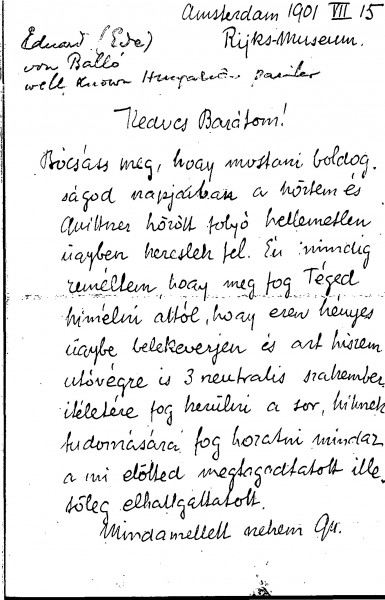 Amsterdam 1901 VII 15
Rijks-Museum.
Eduard (Ede)
von Balló
well known Hungarian painter
Kedves Barátom!
Bócsáss meg, hogy mostani boldog-
ságod napjaiban a köztem és
Quittner között folyó kellemetlen
ügyben kereslek fel. Én mindig
reméltem, hogy meg fog Téged
kimélni attól, hogy ezen kényes
ügybe belekeverjen és azt hiszem
utóvégre is 3 neutralis szakember
itéletére fog kerülni a sor, kiknek
tudomására fog hozatni mindaz
a mi előtted megtagadtatott ille-
tőleg elhallgattatott.
Mindamellett nekem Qu.